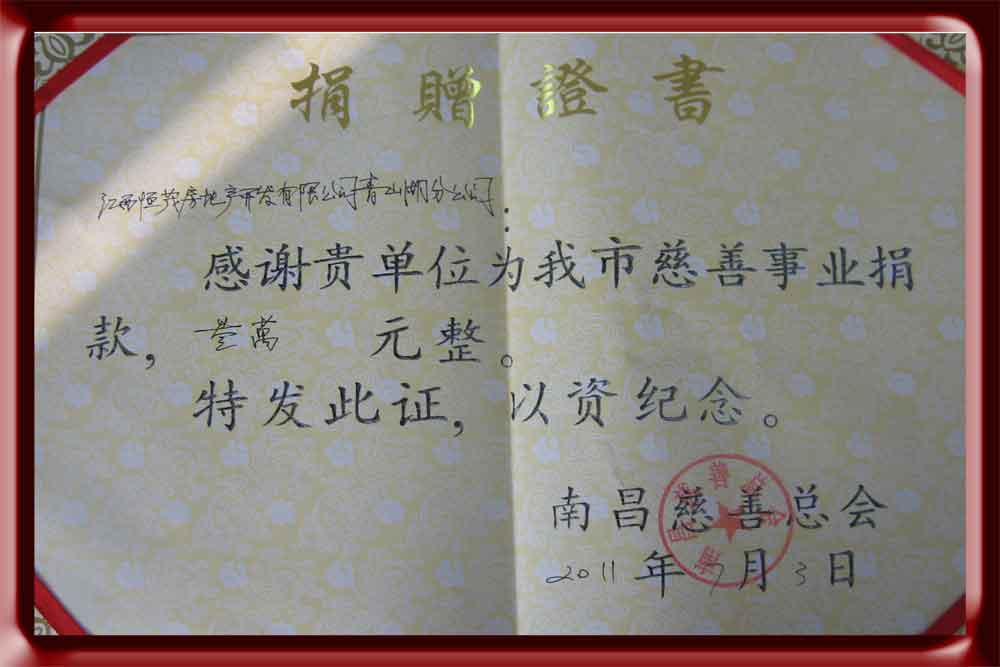 捐贈證書
江西恒茂房地产开发有限公司青山湖分公司：
感谢贵单位为我市慈善事业捐
款，壹萬 元整。
特发此证，以资纪念。
南昌慈善总会
2011年7月3日
南昌慈善总会